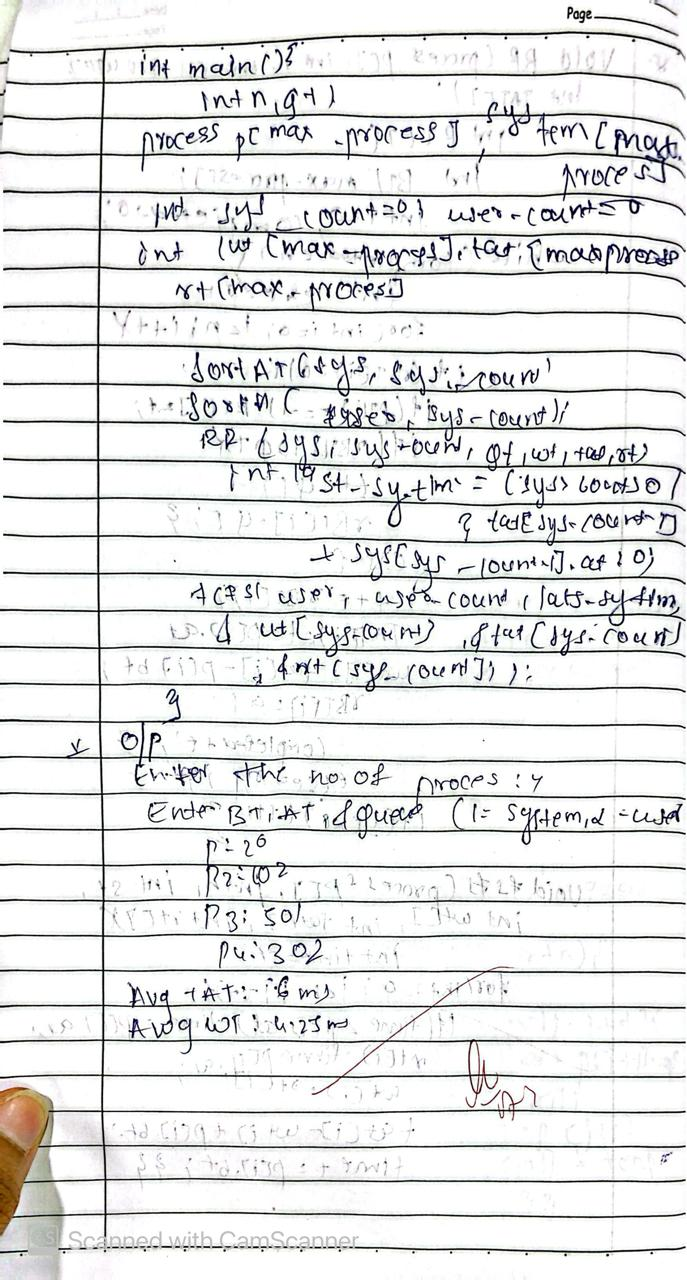 Page
int main(){
int n, qt;
process p[max-process], system[max-
process]
int sys_count=0; user-count=0
int wt[max-process], tat[maxprocess
rt[max-process]
sortAT(sys, sys-count)
sort (user, sys-count);
RR (sys, sys-count, qt, wt, tat, rt)
int last-sy-tim = (sys>count>0)
? tat[sys-count-1]
+ sys[sys-count-1].at : 0;
user, user-count, lats-sy-tim,
& wt[sys-count}, &tat[sys-count]
, &rt(sys_count]);
}
O/P
Enter the no of proces : 4
Enter BT, AT, & queue (1= system, 2=user
P1: 20
P2: 402
P3: 501
P4: 302
Avg TAT:- 6 ms
Avg WT: 4.25 ms
CS Scanned with CamScanner